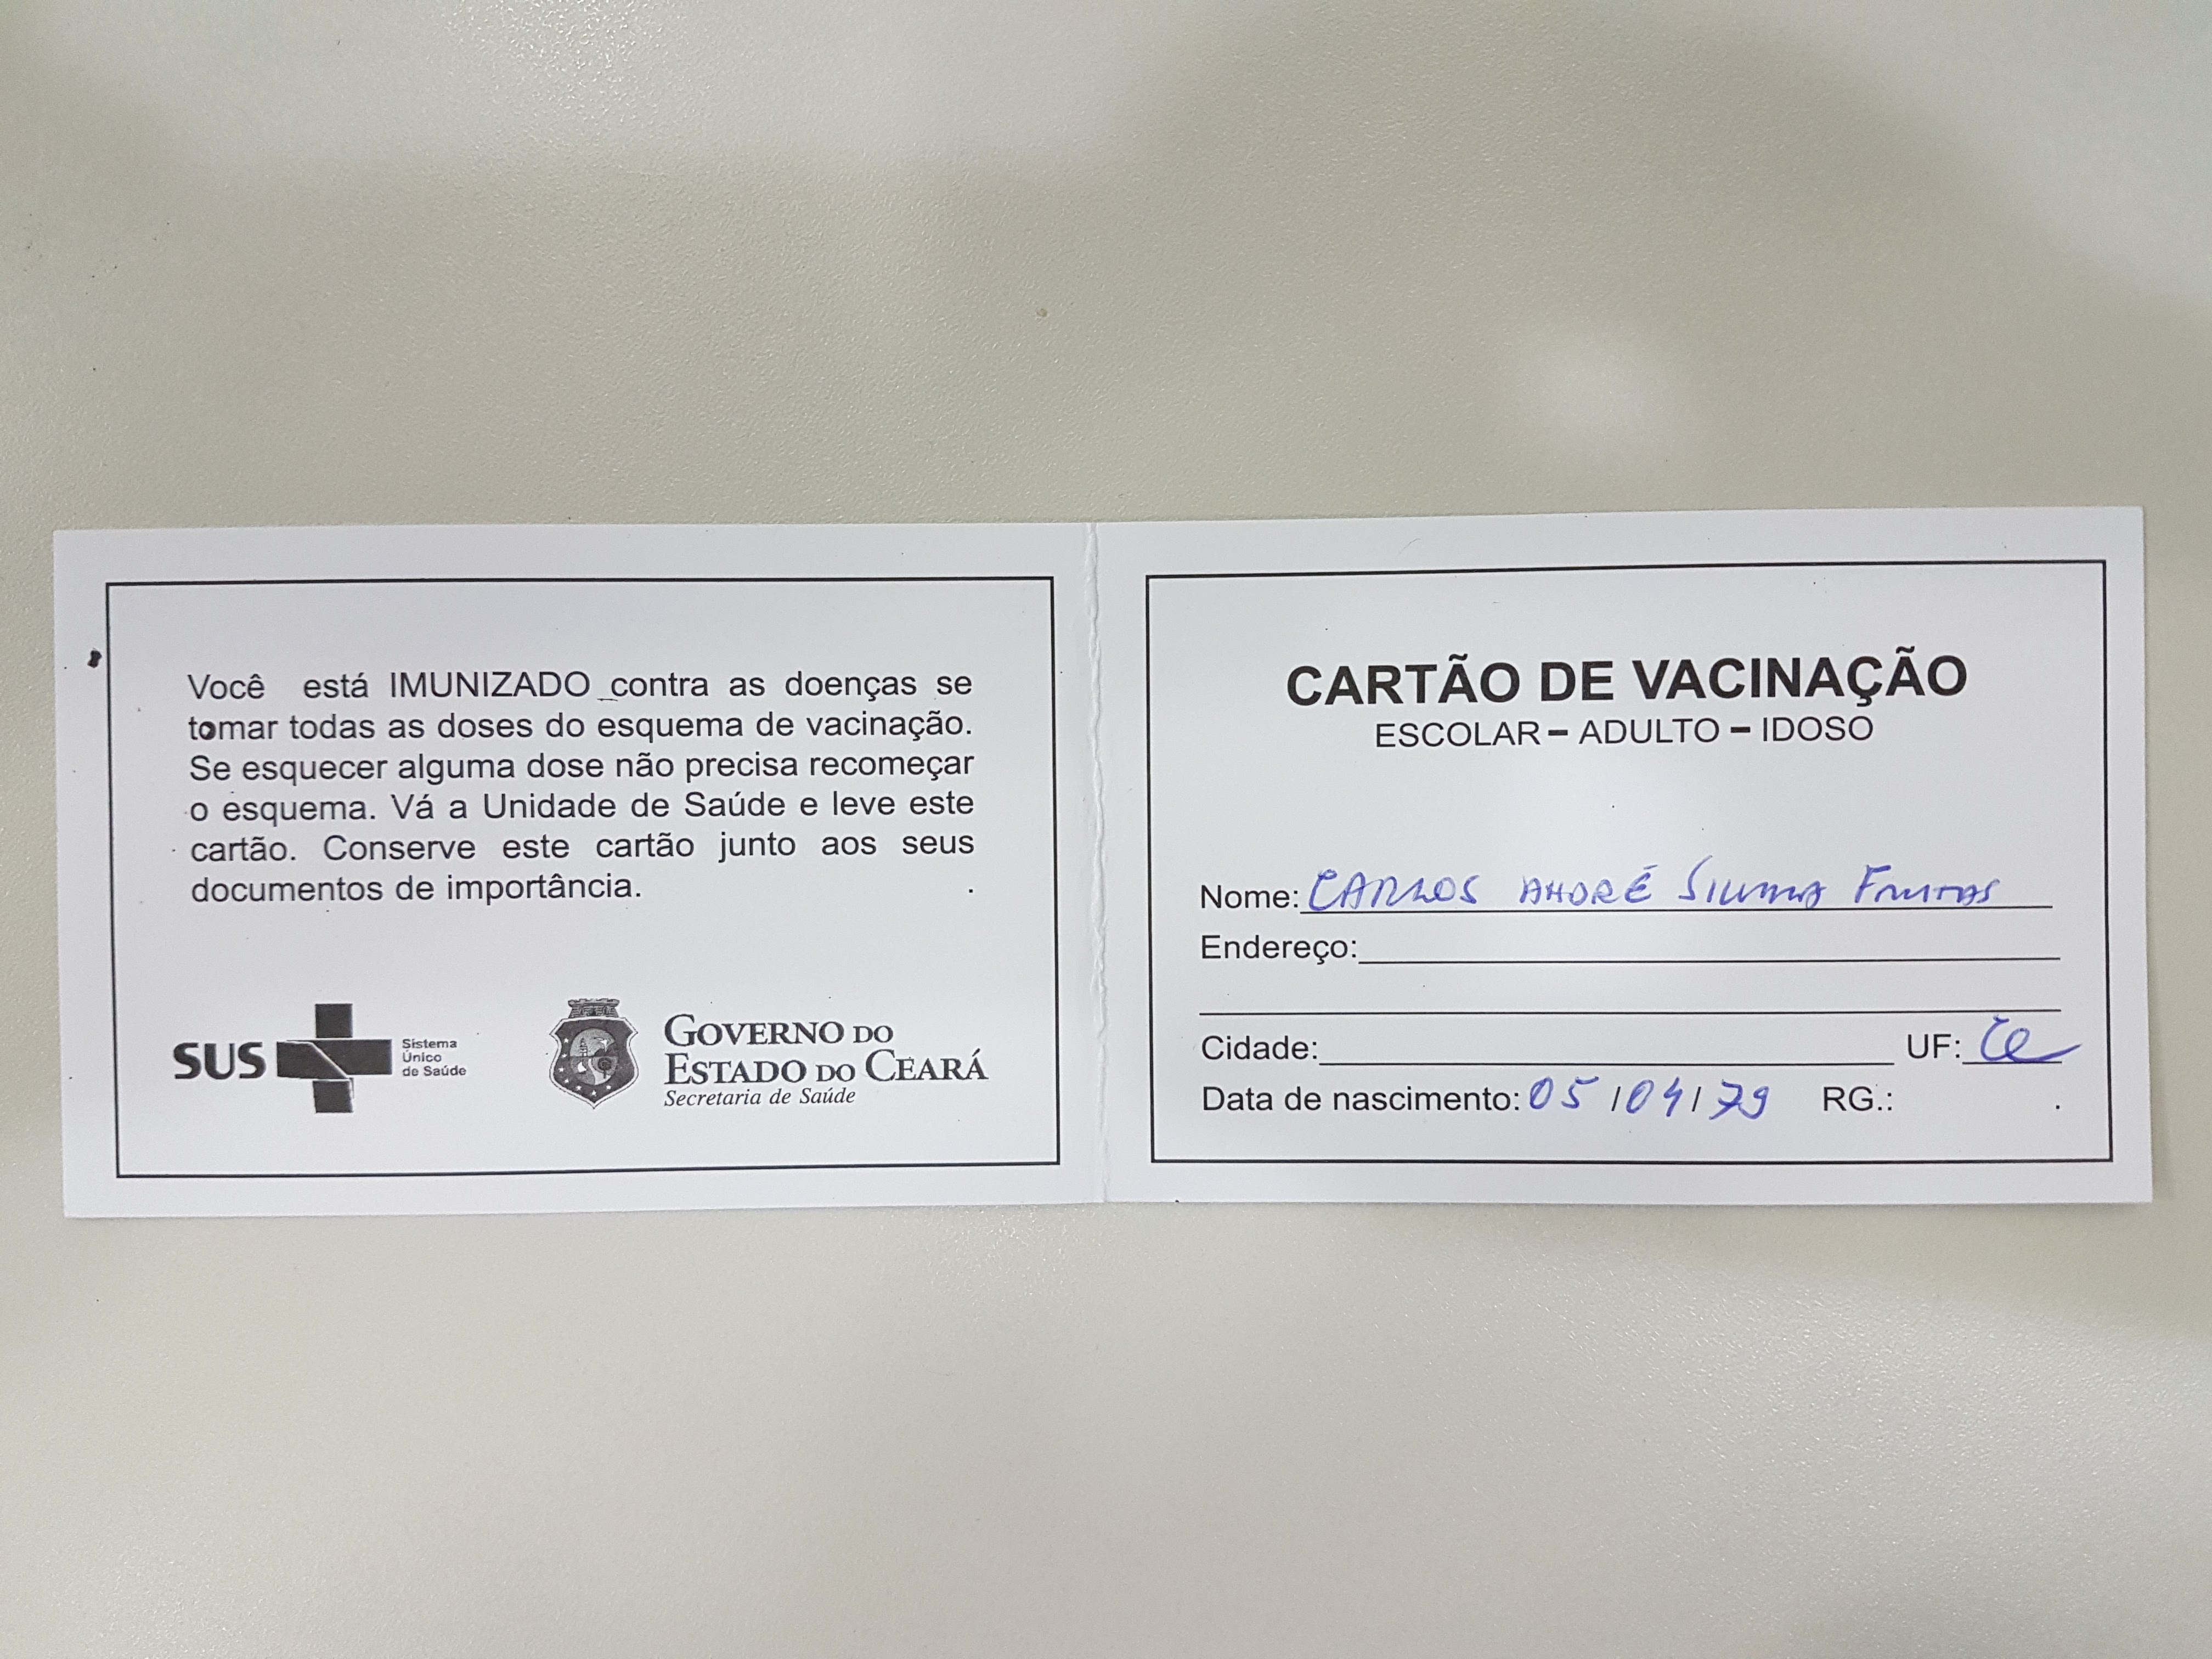 Você está IMUNIZADO contra as doenças se
tomar todas as doses do esquema de vacinação.
Se esquecer alguma dose não precisa recomeçar
o esquema. Vá a Unidade de Saúde e leve este
cartão. Conserve este cartão junto aos seus
documentos de importância.
SUS
Sistema
Único
de Saúde
GOVERNO DO
ESTADO DO CEARÁ
Secretaria de Saúde
CARTÃO DE VACINAÇÃO
ESCOLAR – ADULTO – IDOSO
Nome: CARLOS ANDRÉ Silva Freitas
Endereço:
Cidade: UF: Ce
Data de nascimento: 05/04/79 RG.: